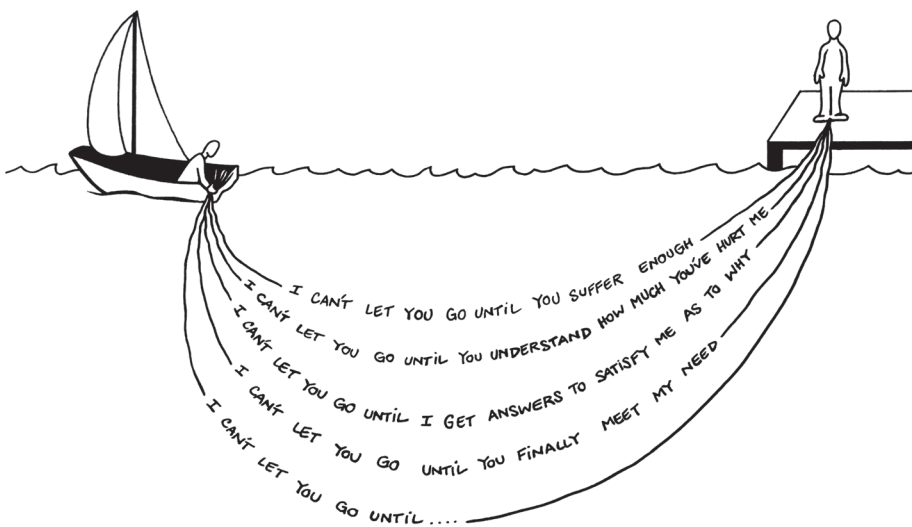 I CAN'T LET YOU GO UNTIL YOU SUFFER ENOUGH
I CAN'T LET YOU GO UNTIL YOU UNDERSTAND HOW MUCH YOU'VE HURT ME
I CAN'T LET YOU GO UNTIL I GET ANSWERS TO SATISFY ME AS TO WHY
I CAN'T LET YOU GO UNTIL YOU FINALLY MEET MY NEED
I CAN'T LET YOU GO UNTIL....